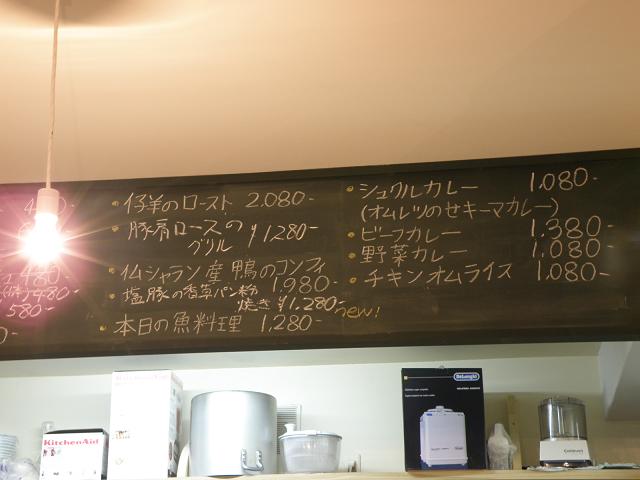 480
480
580
仔羊のロースト 2.080-
豚肩ロースの
グリル ¥1,280-
仏シャラン産鴨のコンフィ
1,980-
塩豚の香草パン粉
焼き ¥1,280-
new!
本日の魚料理 1,280-
シュクルカレー 1,080-
(オムレツのせキーマカレー)
ビーフカレー 1,380-
野菜カレー 1,080-
チキンオムライス 1,080-
KitchenAid
KitchenAid
DeLonghi
Cuisinart